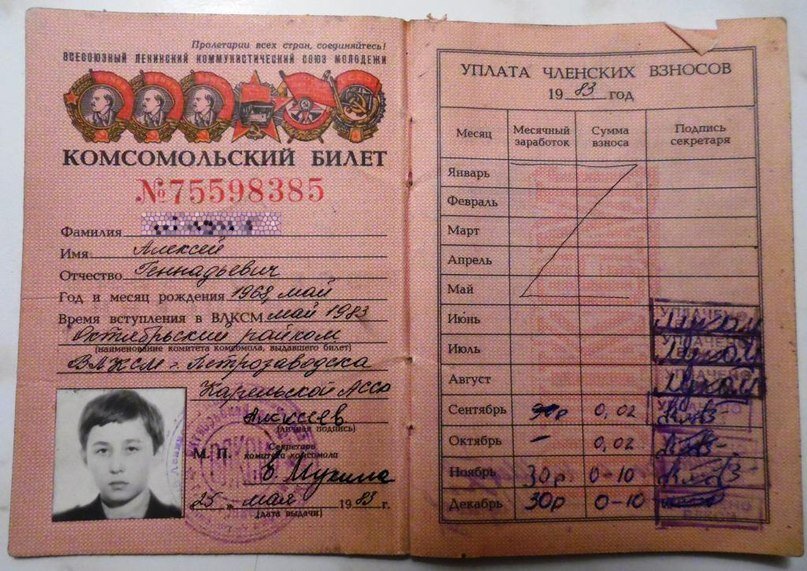 Пролетарии всех стран, соединяйтесь!
ВСЕСОЮЗНЫЙ ЛЕНИНСКИЙ КОММУНИСТИЧЕСКИЙ СОЮЗ МОЛОДЕЖИ
КОМСОМОЛЬСКИЙ БИЛЕТ
№75598385
Фамилия
Имя Алексей
Отчество Геннадьевич
Год и месяц рождения 1968, май
Время вступления в ВЛКСМ май 1983
Октябрьский райком
(наименование комитета комсомола, выдавшего билет)
ВЛКСМ г. Петрозаводска
Карельской АССР
Алексеев
(личная подпись)
М. П.
Секретарь
комитета комсомола
Мухина
25 мая 1983 г.
(дата выдачи)
УПЛАТА ЧЛЕНСКИХ ВЗНОСОВ
1983 год
Месяц Месячный заработок Сумма взноса Подпись секретаря
Январь
Февраль
Март
Апрель
Май
Июнь УПЛАЧЕНО
Июль
Август
Сентябрь 0,02
Октябрь — 0,02
Ноябрь 30р 0-10
Декабрь 30р 0-10